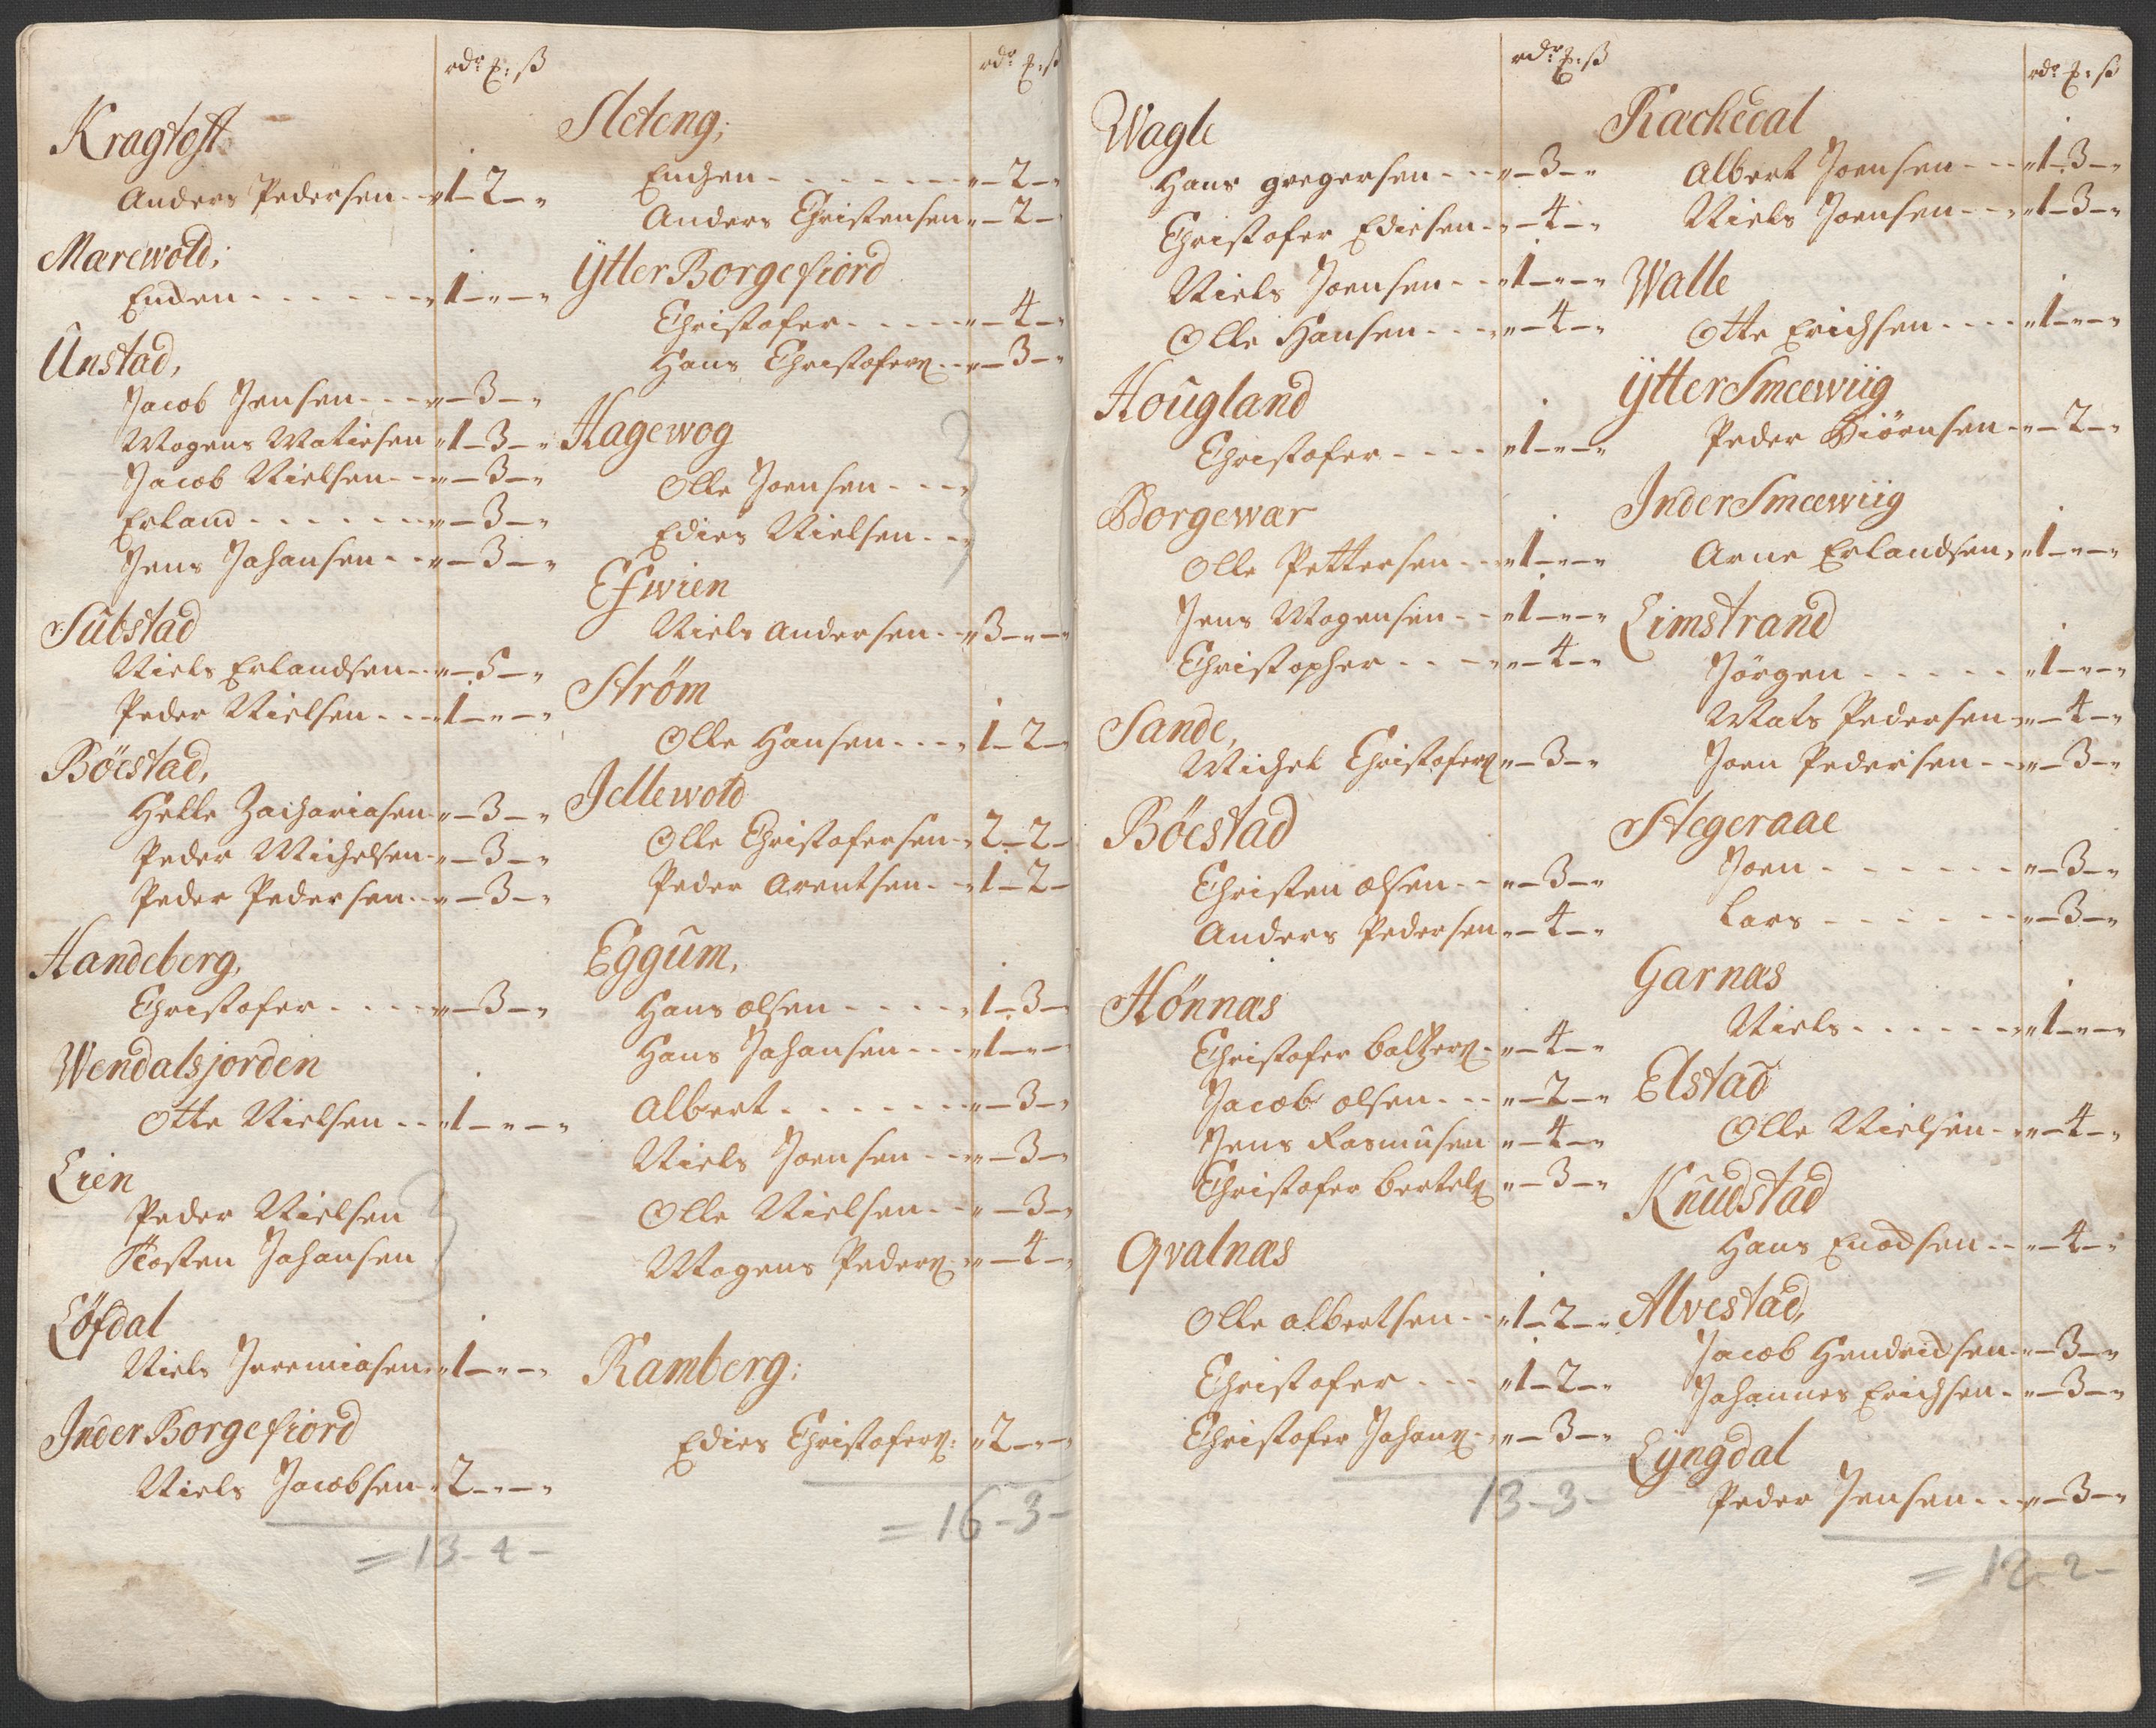 rdr ẞ: ß
Kragtoft
Anders Pedersen - - „1 - 2 - „
Marewold;
Enden - - - - - - „1 - „ - „
Unstad,
Jacob Jensen - - - „ - 3 - „
Mogens Matiesen „1 - 3 - „
Jacob Nielsen - - „ - 3 - „
Erland - - - - - - „ - 3 - „
Jens Johansen - - „ - 3 - „
Substad
Niels Erlandsen - - „ - 5 - „
Peder Nielsen - - - „1 - „ - „
Böestad,
Helle Zachariasen - „ - 3 - „
Peder Michelsen - „ - 3 - „
Peder Pedersen - - „ - 3 - „
Handeberg,
Christofer - - - - „ - 3 - „
Wendalsjorden
Otte Nielsen - - „1 - „ - „
Lien
Peder Nielsen
Tosten Johansen
Löfdal
Niels Jeremiasen - „1 - „ - „
Inder Borgefiord
Niels Jacobsen - „2 - „ - „
= 13 - 4 -
rdr ẞ: ß
Sleteng;
Enchen - - - - - - - „ - 2 - „
Anders Christensen „ - 2 - „
Ytter Borgefiord
Christofer - - - - - „ - 4 - „
Hans Christofers: - - „ - 3 - „
Hagewog
Olle Joensen - - -
Edies Nielsen - -
Efwien
Niels Andersen - - „3 - „ - „
Strøm
Olle Hansen - - - „1 - 2 -
Jellewold
Olle Christofersen - „2 - 2 -
Peder Arentsen - - „1 - 2 -
Eggum,
Hans Olsen - - - - „1 - 3 -
Hans Johansen - - - „1 - „ -
Albert - - - - - - - „ - 3 - „
Niels Joensen - - „ - 3 - „
Olle Nielsen - - „ - 3 - „
Mogens Peders: „ - 4 - „
Ramberg:
Edies Christofers: „2 - „ - „
= 16 - 3 -
rdr ẞ: ß
Wagle
Hans gregersen - - „ - 3 - „
Christofer Ediesen - „ - 4 - „
Niels Joensen - - „1 - „ - „
Olle Hansen - - - „ - 4 - „
Hougland
Christofer - - - - „1 - „ - „
Borgewær
Olle Pettersen - - „1 - „ - „
Jens Mogensen - - „1 - „ - „
Christopher - - - „ - 4 - „
Sande,
Michel Christofers: „ - 3 - „
Böestad
Christen Olsen - - „ - 3 - „
Anders Pedersen „ - 4 - „
Hönnæs
Christofer Baltzers: - „ - 4 - „
Jacob Olsen - - - „ - 2 - „
Jens Rasmusen „ - 4 - „
Christofer Bertels: „ - 3 - „
Qvalnæs
Olle Albertsen - - „1 - 2 - „
Christofer - - - „1 - 2 - „
Christofer Johans: - „ - 3 - „
13 - 3 -
rdr ẞ: ß
Rachedal
Albert Joensen - - - „1 - 3 - „
Niels Joensen - - - „1 - 3 - „
Walle
Otte Erichsen - - - - „1 - „ - „
Ytter Smeewiig
Peder Biörnsen - „ - 2 - „
Inder Smeewiig
Arne Erlandsen, „1 - „ - „
Limstrand
Jörgen - - - - - „1 - „ - „
Mats Pedersen - „ - 4 - „
Joen Pedersen - - „ - 3 - „
Stegeraae
Joen - - - - - - „ - 3 - „
Lars - - - - - - „ - 3 - „
Garnæs
Niels - - - - - - „1 - „ - „
Elstad
Olle Nielsen - - „ - 4 - „
Knudstad
Hans Enodsen - - „ - 4 - „
Alvestad,
Jacob Hendricsen - „ - 3 - „
Johannes Erichsen - „ - 3 - „
Lyngdal
Peder Jensen - - - „ - 3 - „
= 12 - 2 -